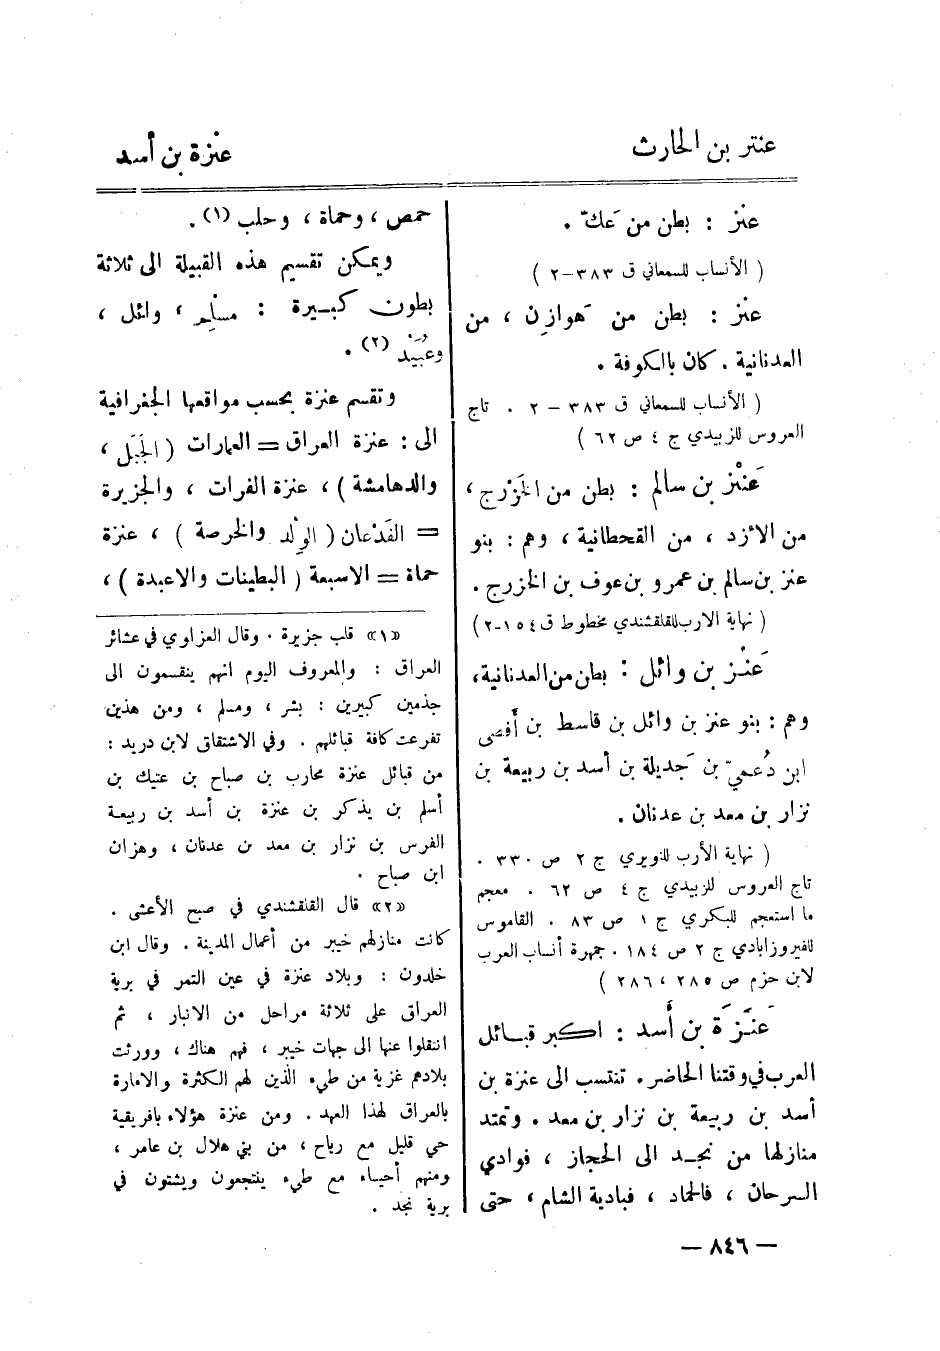 عنتر بن الحارث
عنزة بن أسد
عنز : بطن من عَكّ .
( الأنساب للسمعاني ق ٣٨٣-٢ )
عنز : بطن من هوازِن ، من
العدنانية . كان بالكوفة .
( الأنساب للسمعاني ق ٣٨٣ – ٢ . تاج
العروس للزبيدي ج ٤ ص ٦٢ )
عَنْز بن سالم : بطن من الخَزْرج ،
من الأزد ، من القحطانية ، وهم : بنو
عنز بن سالم بن عمرو بن عوف بن الخزرج .
( نهاية الارب للقلقشندي مخطوط ق ١٥٤-٢ )
عَنْز بن وائل : بطن من العدنانية ،
وهم : بنو عنز بن وائل بن قاسط بن أَفصى
ابن دُعميّ بن جَديلة بن أسد بن ربيعة بن
نزار بن معد بن عدنان .
( نهاية الأرب للنويري ج ٢ ص ٣٣٠ .
تاج العروس للزبيدي ج ٤ ص ٦٢ . معجم
ما استعجم للبكري ج ١ ص ٨٣ . القاموس
للفيروزابادي ج ٢ ص ١٨٤ . جمهرة أنساب العرب
لابن حزم ص ٢٨٥ ، ٢٨٦ )
عَنَزَة بن أَسد : اكبر قبائل
العرب في وقتنا الحاضر . تنتسب الى عنزة بن
أسد بن ربيعة بن نزار بن معد . وتمتد
منازلها من نجد الى الحجاز ، فوادي
السرحان ، فالحماد ، فبادية الشام ، حتى
حمص ، وحماة ، وحلب (١) .
ويمكن تقسيم هذه القبيلة الى ثلاثة
بطون كبيرة : مسلم ، وائل ،
وعُبَيْد (٢) .
وتقسم عنزة بحسب مواقعها الجغرافية
الى : عنزة العراق = العمارات ( الجَبَل ،
والدهامشة ) ، عنزة الفرات ، والجزيرة
= الفَدْعان ( الوِلْد والخرصة ) ، عنزة
حماة = الاسبعة ( البطينات والاعبدة ) ،
«١» قلب جزيرة . وقال العزاوي في عشائر
العراق : والمعروف اليوم انهم ينقسمون الى
جذمين كبيرين : بشر ، ومسلم ، ومن هذين
تفرعت كافة قبائلهم . وفي الاشتقاق لابن دريد :
من قبائل عنزة محارب بن صباح بن عتيك بن
أسلم بن يذكر بن عنزة بن أسد بن ربيعة
الفرس بن نزار بن معد بن عدنان ، وهزان
ابن صباح .
«٢» قال القلقشندي في صبح الأعشى .
كانت منازلهم خيبر من أعمال المدينة . وقال ابن
خلدون : وبلاد عنزة في عين التمر في برية
العراق على ثلاثة مراحل من الانبار ، ثم
انتقلوا عنها الى جهات خيبر ، فهم هناك ، وورثت
بلادهم غزية من طيء الذين لهم الكثرة والامارة
بالعراق لهذا العهد . ومن عنزة هؤلاء بافريقية
حي قليل مع رياح ، من بني هلال بن عامر ،
ومنهم أحياء مع طيء ينتجعون ويشتون في
برية نجد .
— ٨٤٦ —